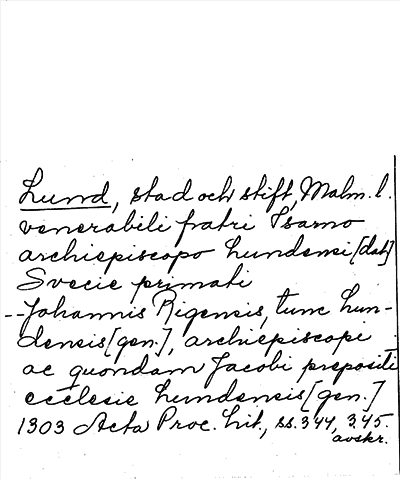 Lund, stad och stift, Malm. l.
venerabili fratri Isarno
archiepiscopo Lundensi [dat]
Svecie primati
--Johannis Rigensis, tunc Lun-
densis [gen.], archiepiscopi
ac quondam Jacobi prepositi
ecclesie Lundensis [gen.]
1303 Acta Proc. Lit., ss. 344, 345.
avskr.